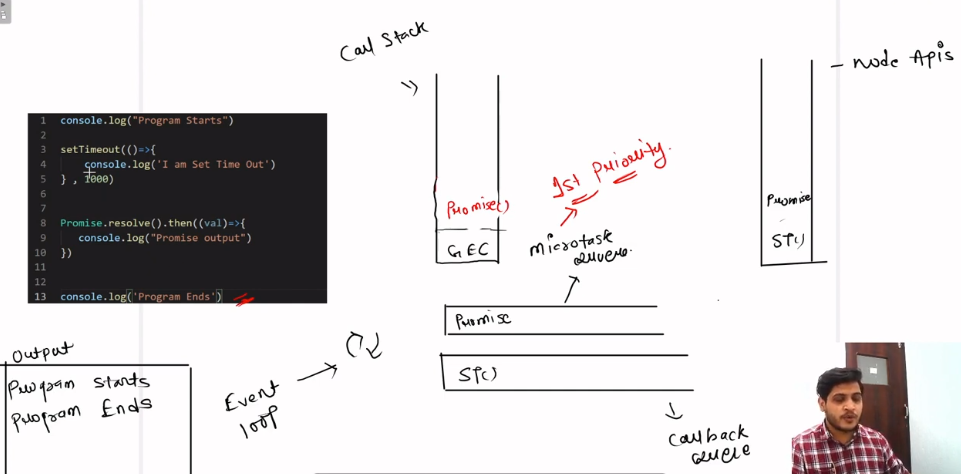 Call Stack
Node Apis
1 console.log("Program Starts")
2
3 setTimeout(()=>{
4 console.log('I am Set Time Out')
5 } , 1000)
6
7
8 Promise.resolve().then((val)=>{
9 console.log("Promise output")
10 })
11
12
13 console.log('Program Ends')
Promise()
GEC
1st Priority.
Microtask
Queue.
Promise
ST()
Promise
ST()
Callback
Queue
Event
loop
Output
Program Starts
Program Ends